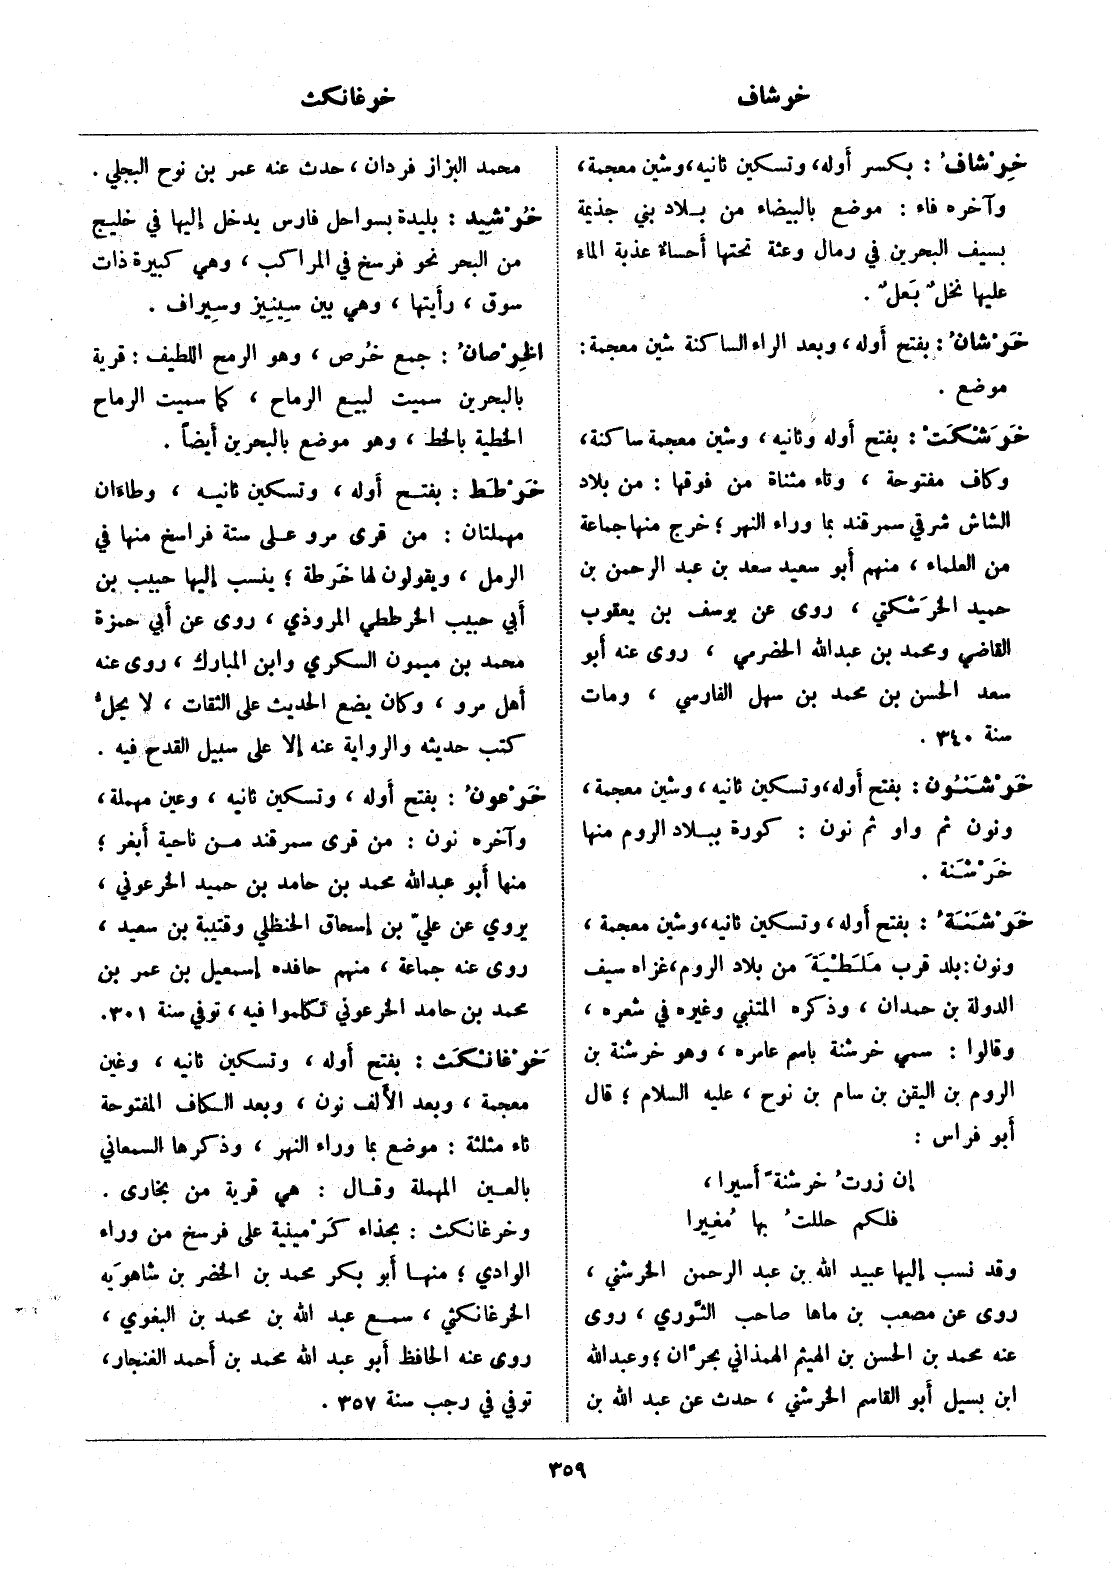 خرشاف
خرغانكث
خِرْشافُ : بكسر أوله، وتسكين ثانيه، وشين معجمة،
وآخره فاء : موضع بالبيضاء من بلاد بني جذيمة
بسيف البحرين في رمال وعثة تحتها أحساءٌ عذبة الماء
عليها نخلٌ بَعلٌ .
خَرْشانُ : بفتح أوله، وبعد الراء الساكنة شين معجمة :
موضع .
خَرَشْكَتْ : بفتح أوله وثانيه، وشين معجمة ساكنة،
وكاف مفتوحة ، وتاء مثناة من فوقها : من بلاد
الشاش شرقي سمرقند بما وراء النهر ؛ خرج منها جماعة
من العلماء ، منهم أبو سعيد سعد بن عبد الرحمن بن
حميد الخرَشكتي ، روى عن يوسف بن يعقوب
القاضي ومحمد بن عبدالله الحضرمي ، روى عنه أبو
سعد الحسن بن محمد بن سهل الفارسي ، ومات
سنة ٣٤٠ .
خَرْشَنُون : بفتح أوله، وتسكين ثانيه، وشين معجمة،
ونون ثم واو ثم نون : كورة ببلاد الروم منها
خَرْشَنة .
خَرْشَنَةُ : بفتح أوله، وتسكين ثانيه، وشين معجمة ،
ونون: بلد قرب مَلَطْيَةَ من بلاد الروم، غزاه سيف
الدولة بن حمدان ، وذكره المتنبي وغيره في شعره ،
وقالوا : سمي خرشنة باسم عامره ، وهو خرشنة بن
الروم بن اليقن بن سام بن نوح ، عليه السلام ؛ قال
أبو فراس :
إن زرتُ خرشنةَ أسيرا ،
فلكم حللتُ بها مُغِيرا
وقد نسب إليها عبيد الله بن عبد الرحمن الخرشني ،
روى عن مصعب بن ماها صاحب الثَّوري ، روى
عنه محمد بن الحسن بن الهيثم الهمذاني بحرَّان ؛ وعبدالله
ابن بسيل أبو القاسم الخرشني ، حدث عن عبد الله بن
محمد البزاز فردان ، حدث عنه عمر بن نوح البجلي .
خُرْشِيد : بليدة بسواحل فارس يدخل إليها في خليج
من البحر نحو فرسخ في المراكب ، وهي كبيرة ذات
سوق ، رأيتها ، وهي بين سِينِيز وسِيراف .
الخِرْصانُ : جمع خُرص ، وهو الرمح اللطيف : قرية
بالبحرين سميت لبيع الرماح ، كما سميت الرماح
الخطية بالخط ، وهو موضع بالبحرين أيضاً .
خَرْطَط : بفتح أوله ، وتسكين ثانيه ، وطاءان
مهملتان : من قرى مرو على ستة فراسخ منها في
الرمل ، ويقولون لها خَرطة ؛ ينسب إليها حبيب بن
أبي حبيب الخرططي المروذي ، روى عن أبي حمزة
محمد بن ميمون السكري وابن المبارك ، روى عنه
أهل مرو ، وكان يضع الحديث على الثقات ، لا يحلُّ
كتب حديثه والرواية عنه إلا على سبيل القدح فيه .
خَرْعونُ : بفتح أوله ، وتسكين ثانيه ، وعين مهملة،
وآخره نون : من قرى سمرقند من ناحية أبغر ؛
منها أبو عبدالله محمد بن حامد بن حميد الخرعوني ،
يروي عن عليّ بن إسحاق الحنظلي وقتيبة بن سعيد ،
روى عنه جماعة ، منهم حافده إسمعيل بن عمر بن
محمد بن حامد الخرعوني تكلموا فيه ، توفي سنة ٣٠١.
خَرْغانْكَث : بفتح أوله ، وتسكين ثانيه ، وغين
معجمة ، وبعد الألف نون ، وبعد الكاف المفتوحة
ثاء مثلثة : موضع بما وراء النهر ، وذكرها السمعاني
بالعين المهملة وقال : هي قرية من بخارى .
وخرغانكث : بحذاء كَرْمينية على فرسخ من وراء
الوادي ؛ منها أبو بكر محمد بن الخضر بن شاهوَيه
الخرغانكثي ، سمع عبد الله بن محمد بن البغوي ،
روى عنه الحافظ أبو عبد الله محمد بن أحمد الغنجار،
توفي في رجب سنة ٣٥٧ .
٣٥٩